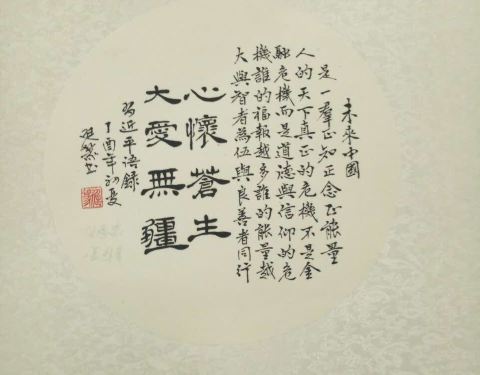 未来中國
是一羣正知正念正能量
人的天下真正的危機不是金
融危機而是道德與信仰的危
機誰的福報越多誰的能量越
大與智者為伍與良善者同行
心懷蒼生
大愛無疆
習近平语錄
丁酉年初夏